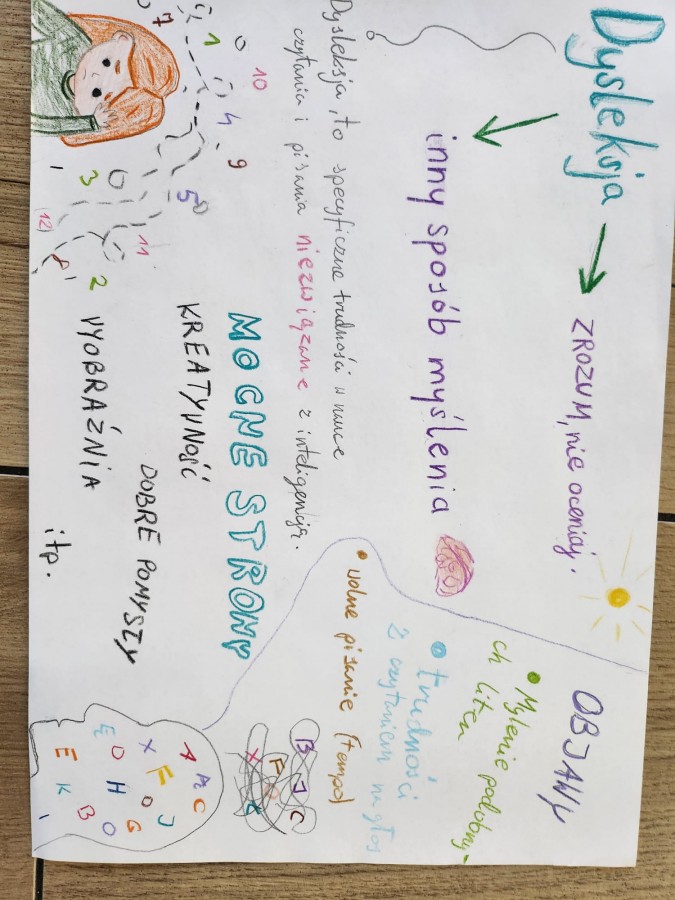 Dysleksja → ZROZUM, nie oceniaj.
inny sposób myślenia
Dysleksja, to specyficzne trudności w nauce
czytania i pisania niezwiązane z inteligencją.
10
1 4 9
7 5
3 11
12 8 2
MOCNE STRONY
KREATYWNOŚĆ
DOBRE POMYSŁY
WYOBRAŹNIA
itp.
OBJAWY
• Mylenie podobny-
ch liter
• trudności
z czytaniem na głos
• wolne pisanie (tempo)
B J C
F
X
A A C
X F O J
E D H G
E K B O